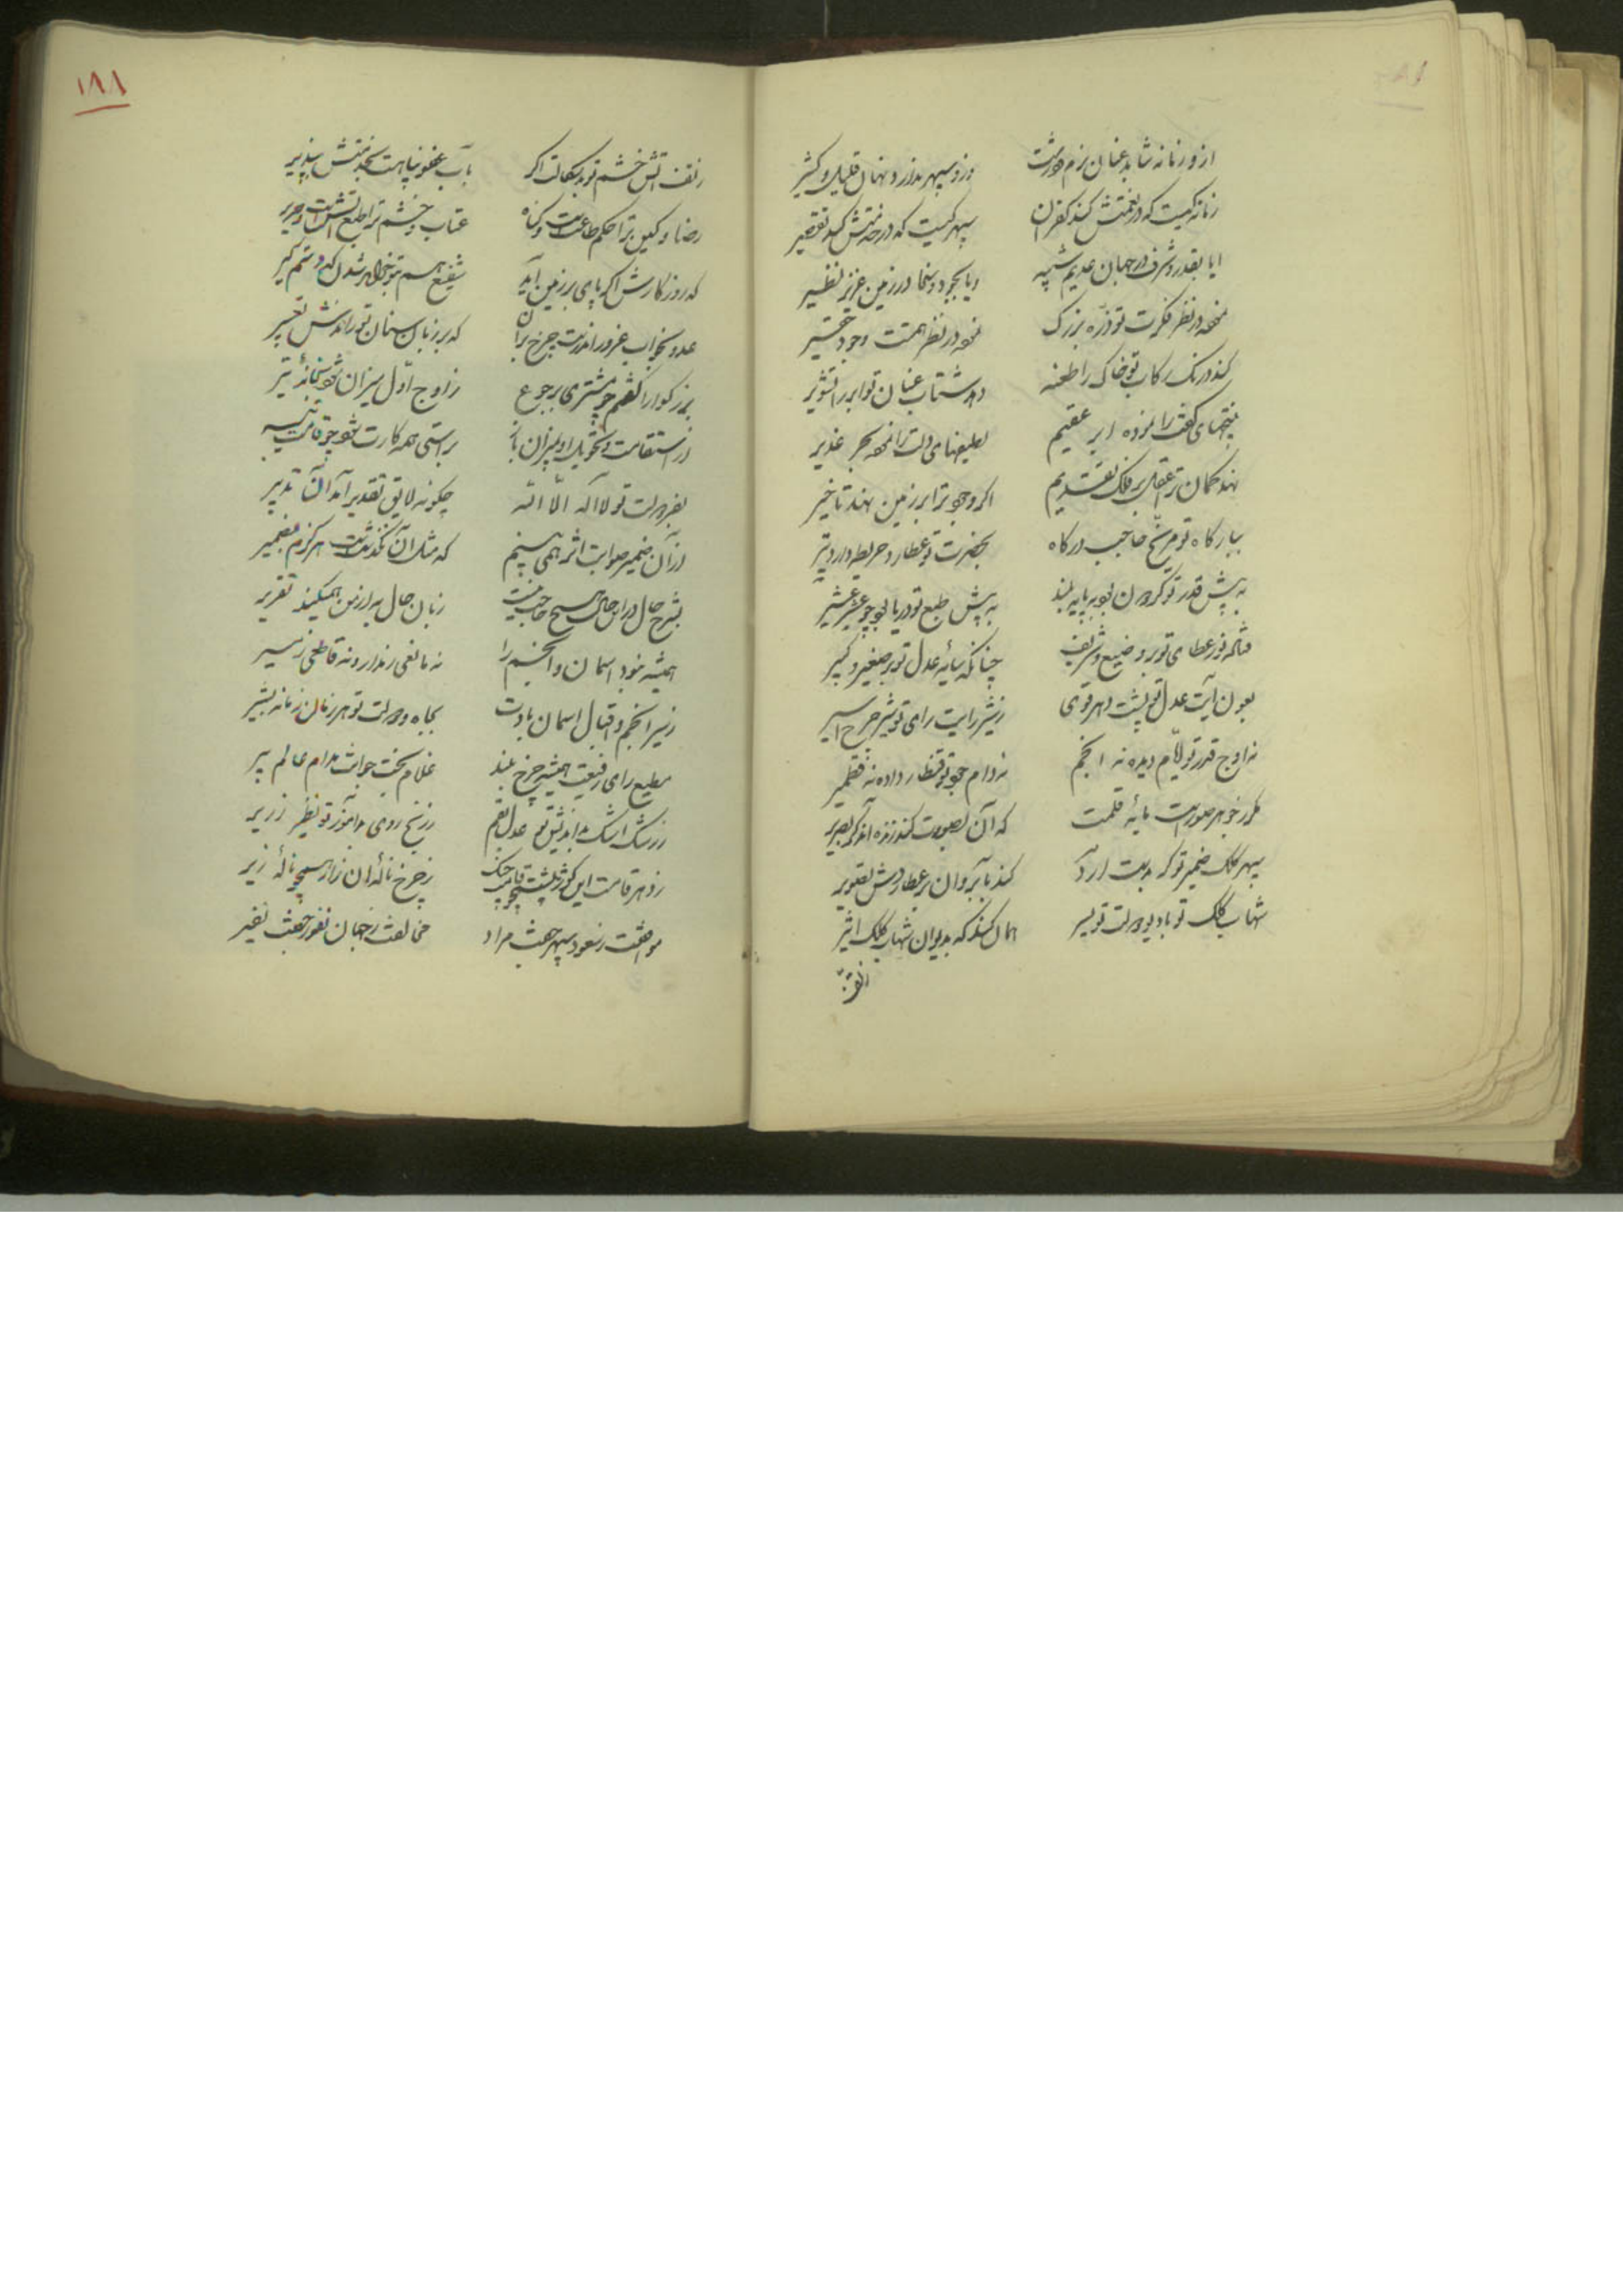 از و زمانه نتابد عنان بزم درشت
وزو سپهر ندارد نهان قلیل و کثیر
زمانه کیست که در نعمتش کند کفران
سپهر کیست که در خدمتش کند تقصیر
ایا بقدر و شرف در جهان عدیم شبیه
ویا بجود و سخا در زمین عزیز نظیر
نموده در نظر فکرت تو ذره بزرگ
نموده در نظر همتت وجود حقیر
کند درنگ رکاب تو خاک را طعنه
دهد شتاب عنان تو ابر را تشویر
کفت را نموده ابر عقیم
دلت را نموده بحر غدیر
نهد کمان ترا عقل بر فلک تقدیم
اگر وجوب ترا بر زمین نهند تاخیر
ببارگاه تو مریخ حاجب درگاه
بحضرت تو عطارد خریطه دار و دبیر
به پیش قدر تو گردون بود بپایه بلند
به پیش طبع تو دریا بود چو عشر عشیر
فتاده نور عطای تو بر وضیع و شریف
چنانکه سایه عدل تو بر صغیر و کبیر
بعون آیت عدل تو پشت دهر قوی
ز شیر رایت رای تو شیر چرخ اسیر
نه اوج قدر تو دیده نه انجم
نه دام جود تو قنطار داده نه قطمیر
مگر خود هر صورتیست مایه قلمت
که آن بصورت کند زنده آن دگر بصریر
سپهر ملک ضمیر تو گر بدست آرد
کند بآب روان بر عطاردش تصویر
شهاب کلک تو با دیو دولت تو بسیر
همان کند که بدیوان شهاب کلک اثیر
زتف
۱۸۸
ز تف آتش خشم تو بدسگالت اگر
بآب عفو پناهت بخدمتش بپذیر
رضا و کین ترا حکم طاعتست و گناه
عتاب و خشم ترا طبع آتشست و حریر
که روزگارش اگر پای بر زمین آید
شفیع هم بتو خواهد شدن که دستم گیر
عدو بخواب غرور اندرست چرخ بران
که بر زبان سنان تو راندش تعبیر
بزرگوارا گفتم چو مشتری برجوع
ز اوج اول میزان شود بخانه تیر
در استقامت و تحویل او بمیزان باز
براستی همه کارت شود چو قامت تیر
بفر دولت تو لا اله الا الله
چگونه لایق تقدیر آمد آن تدبیر
در آن ضمیر صوابت اثر همی بینم
که مثل آن نگذشتست هرگزم بضمیر
بشرح حال در این حال هیچ حاجت نیست
زبان حال به از من همیکند تقریر
همیشه نبود آسمان و انجم را
نه مانعی ز مدار و نه قاطعی ز مسیر
ز سیر انجم و اقبال آسمان بادت
بجاه و دولت تو هر زمان زمانه بشیر
مطیع رای رفیعت همیشه چرخ بلند
غلام بخت جوانت مدام عالم پیر
ز رشک اشک بداندیش تو عدیل بقم
ز رنج روی بدآموز تو نظیر زریر
ز دهر قامت این کوژ پشت چو قامت چنگ
ز چرخ ناله آن زار همچو ناله زیر
موافقت ز سعود سپهر جفت مراد
مخالفت ز جهان نفور جفت نفیر